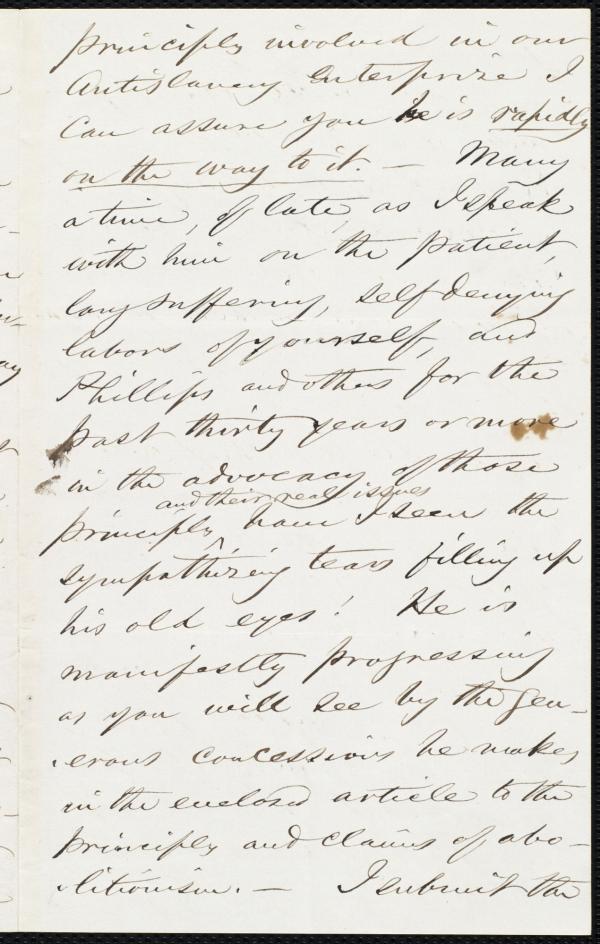 principles involved in our
Antislavery Enterprize I
can assure you he is rapidly
on the way to it. — Many
a time, of late, as I speak
with him on the patient,
long suffering, self denying
labors of yourself, and
Phillips and others for the
past thirty years or more
in the advocacy of those
and their real issues
principles, have I seen the
sympathizing tears filling up
his old eyes! He is
manifestly progressing
as you will see by the gen-
erous concessions he makes
in the enclosed article to the
principles and claims of abo-
litionism. — I submit the